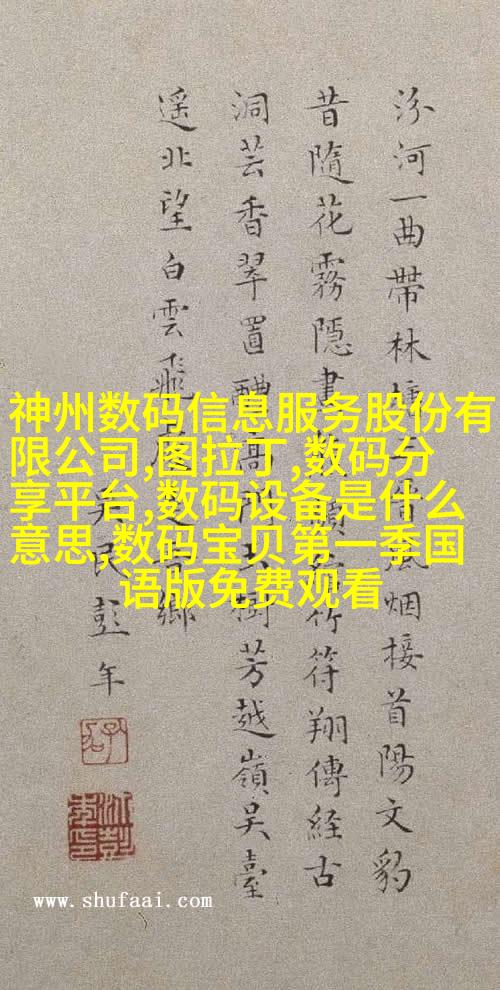 汾河一曲帶林風烟接首陽文豹
昔隨花霧隱書竹符翔傳經古
洞芸香翠置醴高樹芳越嶺吳臺
遥北望白雲飛鄉
民彭年
神州数码信息服务股份有
限公司,图拉丁,数码分
享平台,数码设备是什么
意思,数码宝贝第一季国
语版免费观看
www.shufaai.com